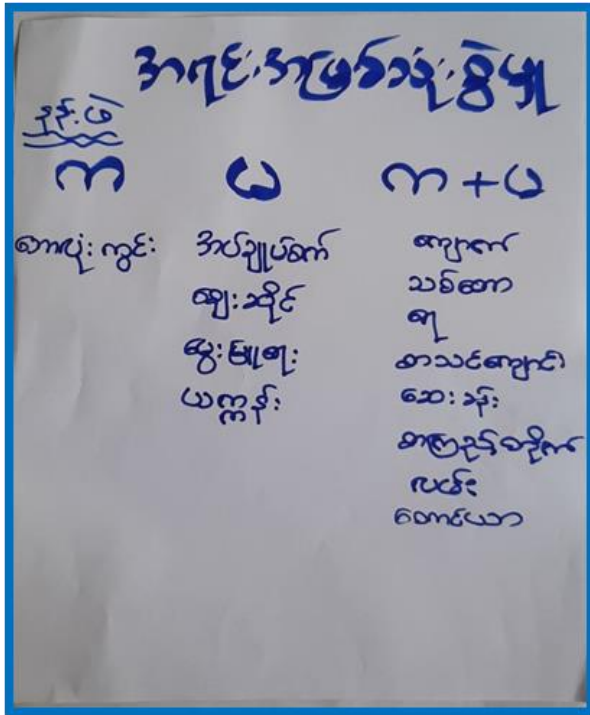 အရင်းအမြစ်သုံးစွဲမှု
နုန်းဖဲ
က မ က + မ
ဘောလုံးကွင်း
အပ်ချုပ်စက်
ဈေးဆိုင်
မွေးမြူရေး
ယက္ကန်း
ကျောက်
သစ်တော
ရေ
စာသင်ကျောင်း
ဆေးခန်း
စာကြည့်တိုက်
လမ်း
တောင်ယာ